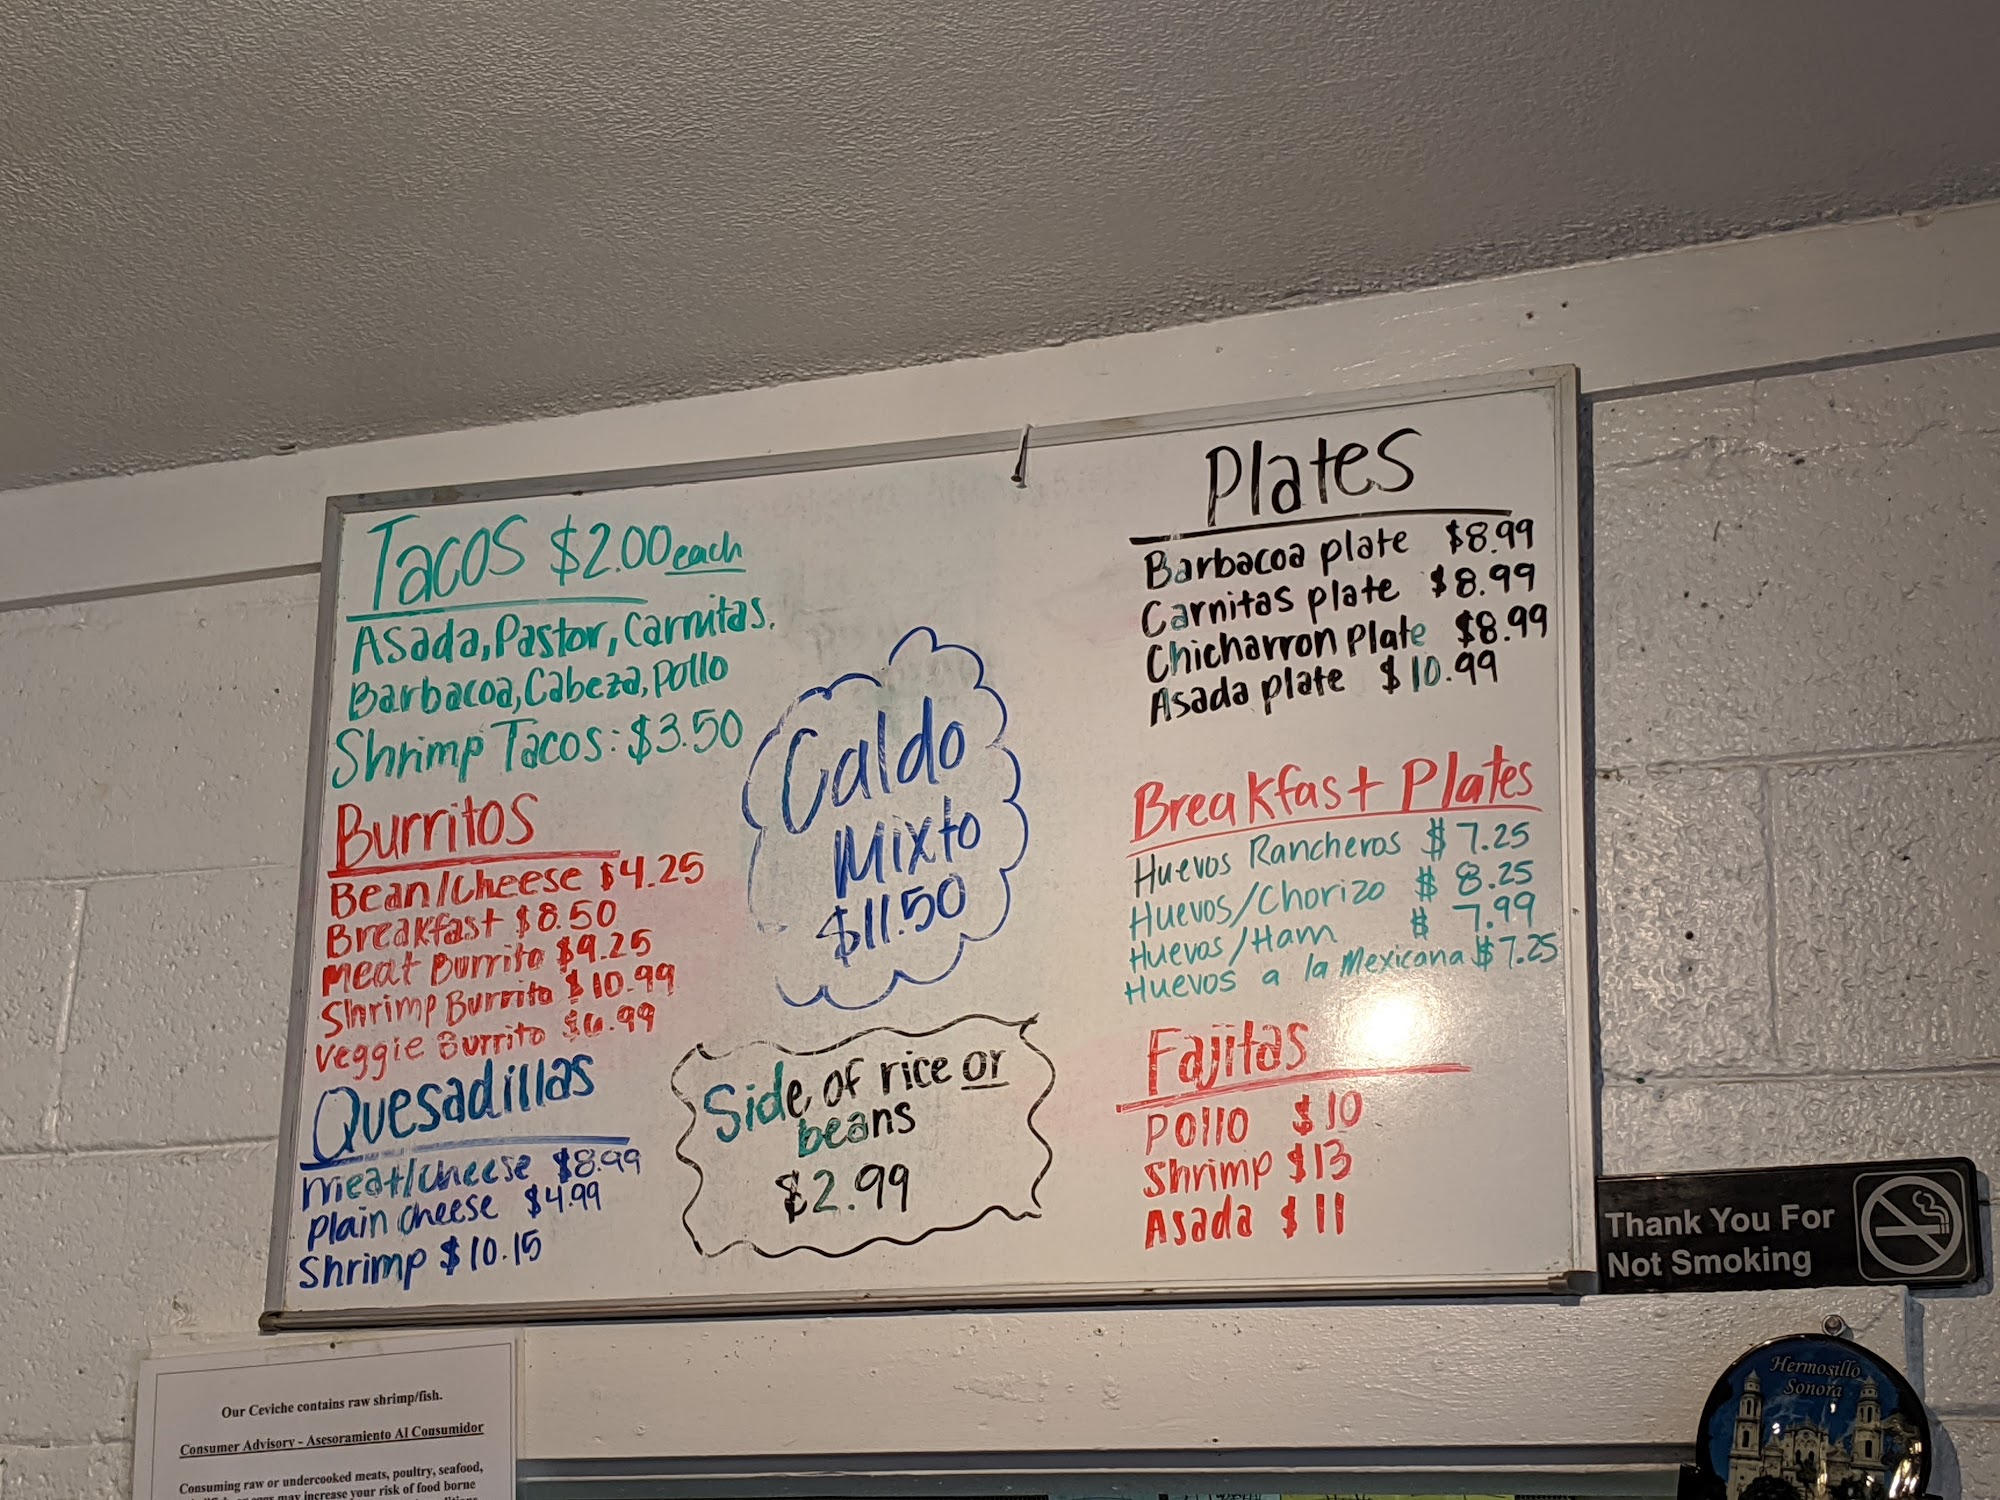 Tacos $2.00 each
Asada, Pastor, Carnitas,
Barbacoa, Cabeza, Pollo
Shrimp Tacos: $3.50
Burritos
Bean/Cheese $4.25
Breakfast $8.50
Meat Burrito $9.25
Shrimp Burrito $10.99
Veggie Burrito $6.99
Quesadillas
Meat/Cheese $8.99
Plain cheese $4.99
Shrimp $10.15
Caldo
Mixto
$11.50
Side of rice or
beans
$2.99
Plates
Barbacoa plate $8.99
Carnitas plate $8.99
Chicharron Plate $8.99
Asada plate $10.99
Breakfast Plates
Huevos Rancheros $7.25
Huevos/Chorizo $8.25
Huevos/Ham $7.99
Huevos a la Mexicana $7.25
Fajitas
Pollo $10
Shrimp $13
Asada $11
Thank You For
Not Smoking
Hermosillo
Sonora
Our Ceviche contains raw shrimp/fish.
Consumer Advisory - Asesoramiento Al Consumidor
Consuming raw or undercooked meats, poultry, seafood,
may increase your risk of food borne